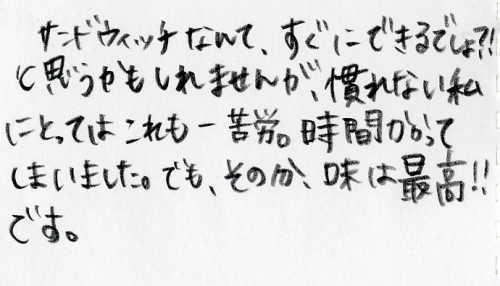 サンドウィッチなんて、すぐにできるでしょ?!
と思うかもしれませんが、慣れない私
にとってはこれも一苦労。時間かかって
しまいました。でも、その分、味は最高!!
です。